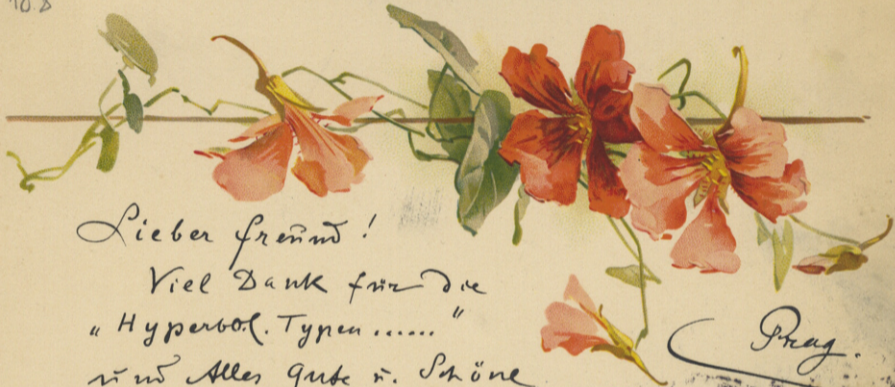 10.8
Lieber Freund!
Viel Dank für die
„Hyperbol. Typen ......"
und Alles Gute u. Schöne
Prag.